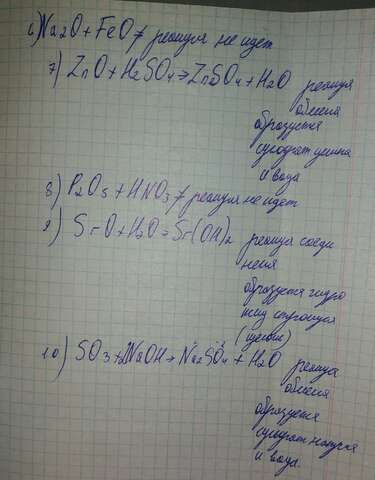 6) Na2O + FeO ≠ реакция не идет
7) ZnO + H2SO4 = ZnSO4 + H2O реакция
обмена
образуется
сульфат цинка
и вода
8) P2O5 + HNO3 ≠ реакция не идет
9) SrO + H2O = Sr(OH)2 реакция соеди
нения
образуется гидро
ксид стронция
(щелочь)
10) SO3 + 2NaOH → Na2SO4 + H2O реакция
обмена
образуется
сульфат натрия
и вода.